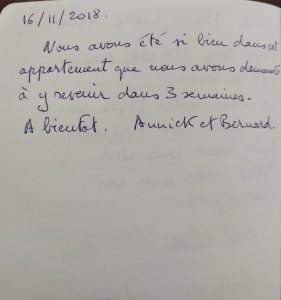 16/11/2018.
Nous avons été si bien dans cet
appartement que nous avons demandé
à y revenir dans 3 semaines.
A bientot. Annick et Bernard.